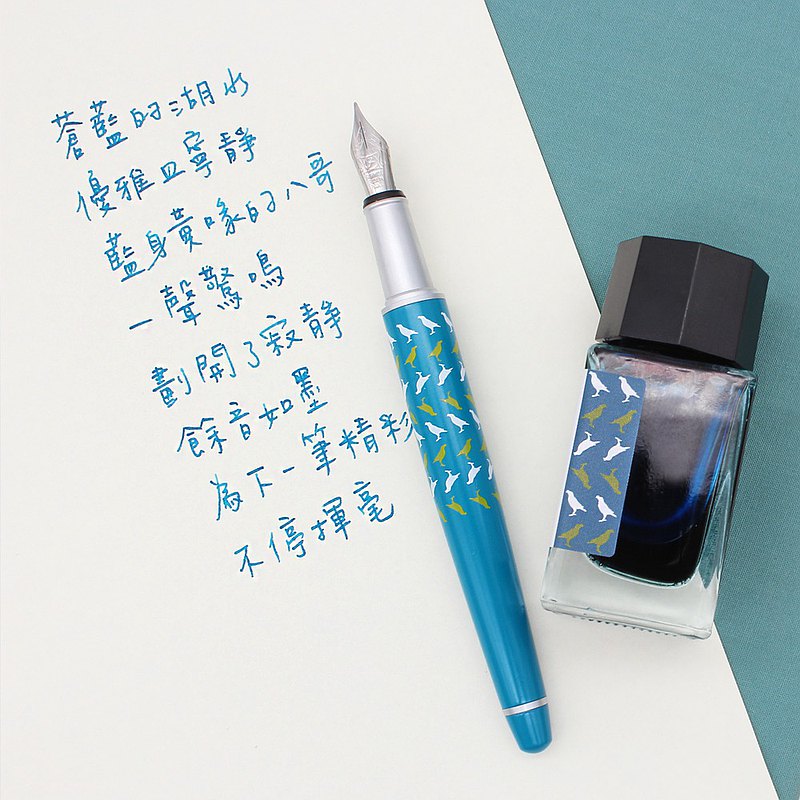 蒼藍的湖水
優雅且寧靜
藍身黃喙的八哥
一聲驚鳴
劃開了寂靜
餘音如墨
為下一筆精彩
不停揮毫